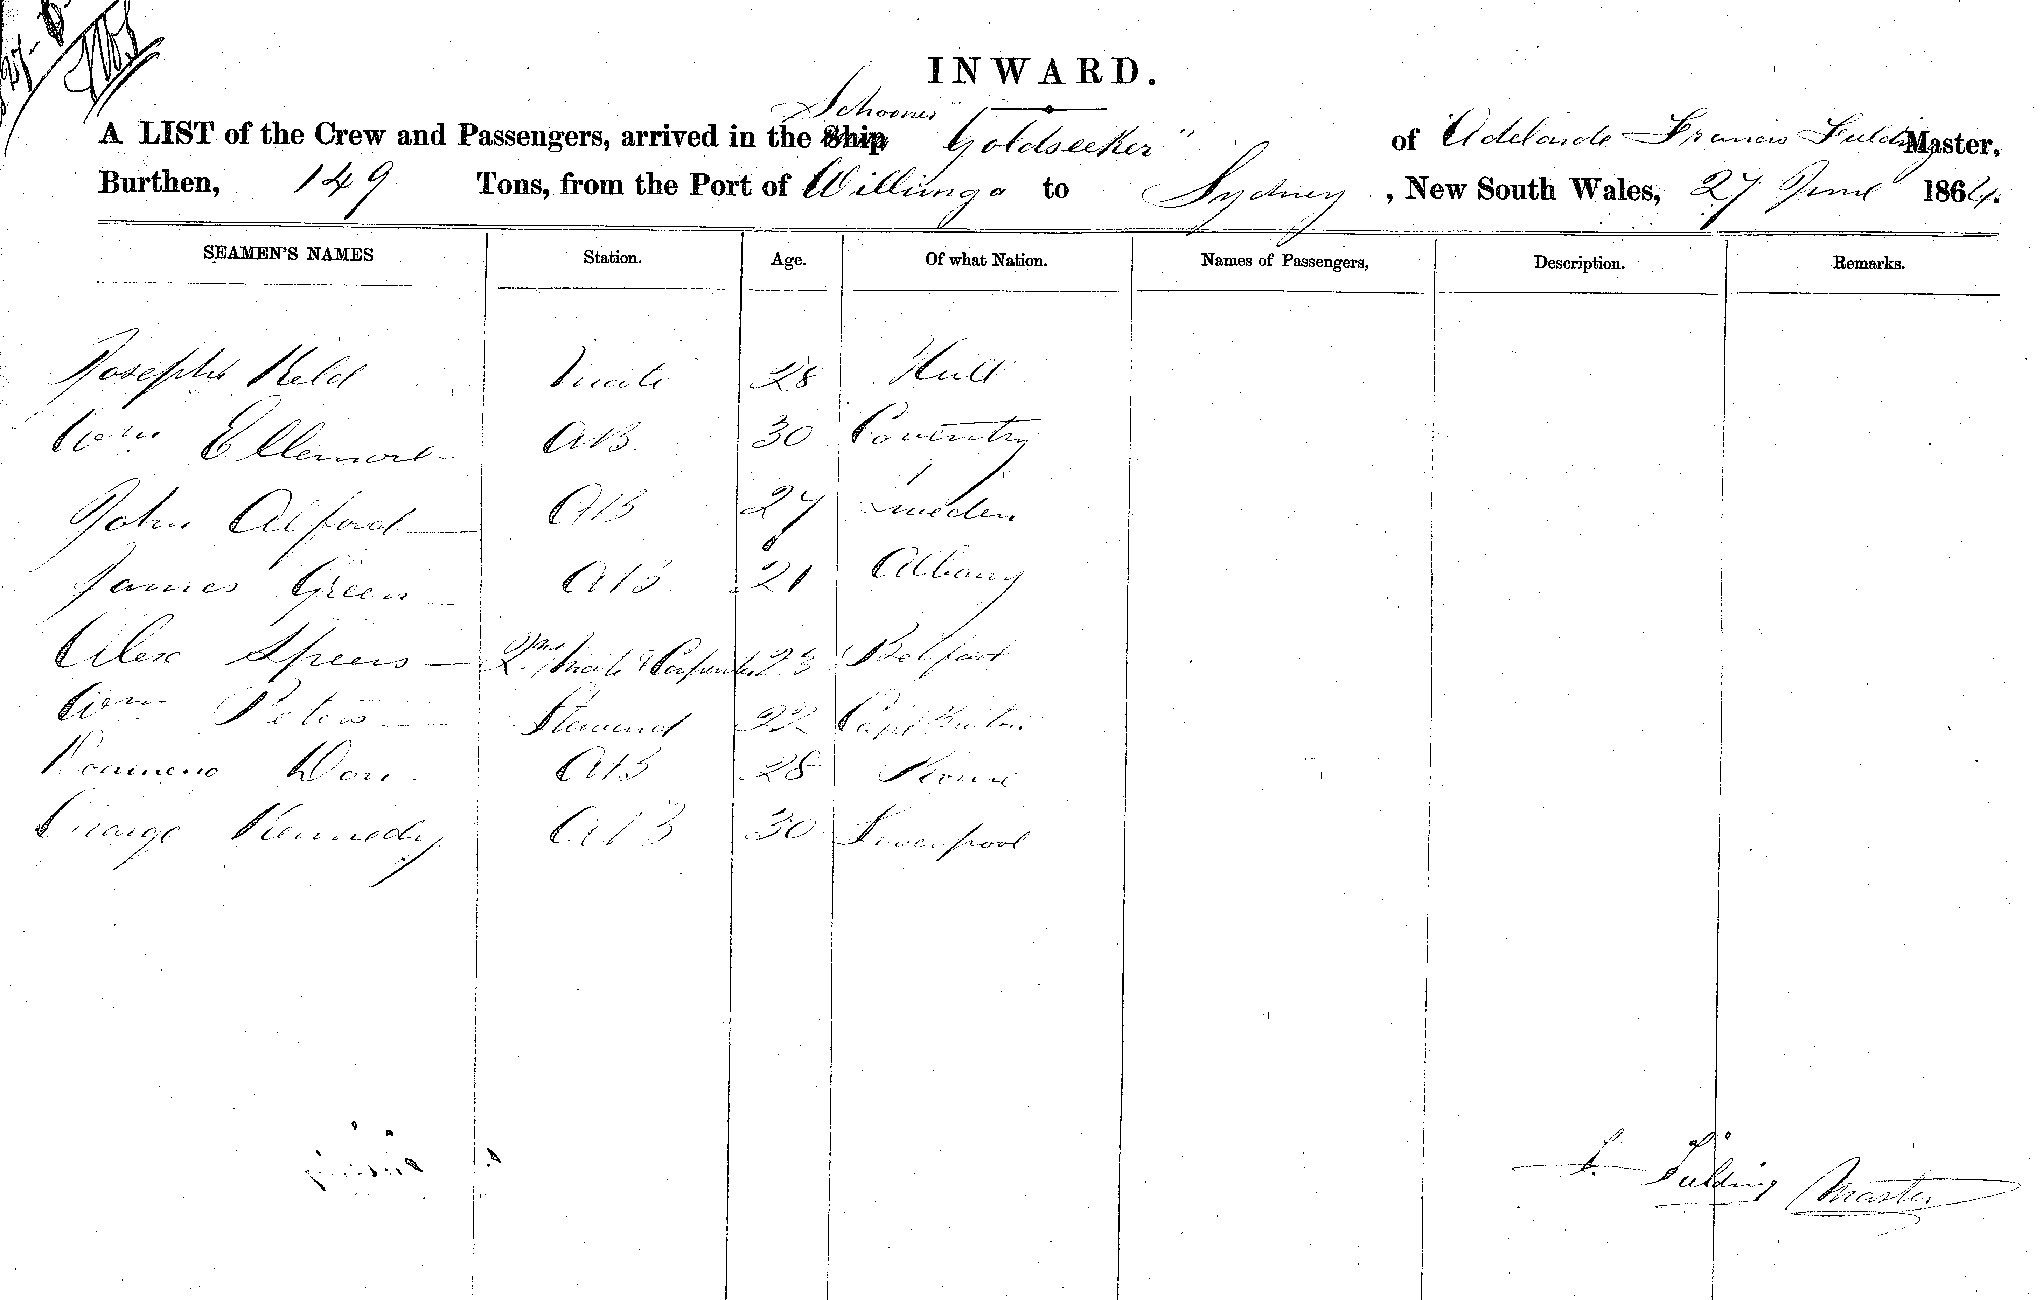 INWARD.
Schooner
A LIST of the Crew and Passengers, arrived in the Ship "Goldseeker" of Adelaide Francis Fielding Master,
Burthen, 149 Tons, from the Port of Willunga to Sydney, New South Wales, 27 June 1864.
SEAMEN'S NAMES Station. Age. Of what Nation. Names of Passengers, Description. Remarks.
Joseph Held Mate 28 Hull
Wm Ellemore AB 30 Coventry
John Alford AB 27 Sweden
James Green AB 21 Albany
Alex Speers 2nd Mate & Carpenter 23 Belfast
Wm Peters Steward 22 Cape
Don AB 28 Rome
George Kennedy AB 30 Liverpool
F. Fielding Master